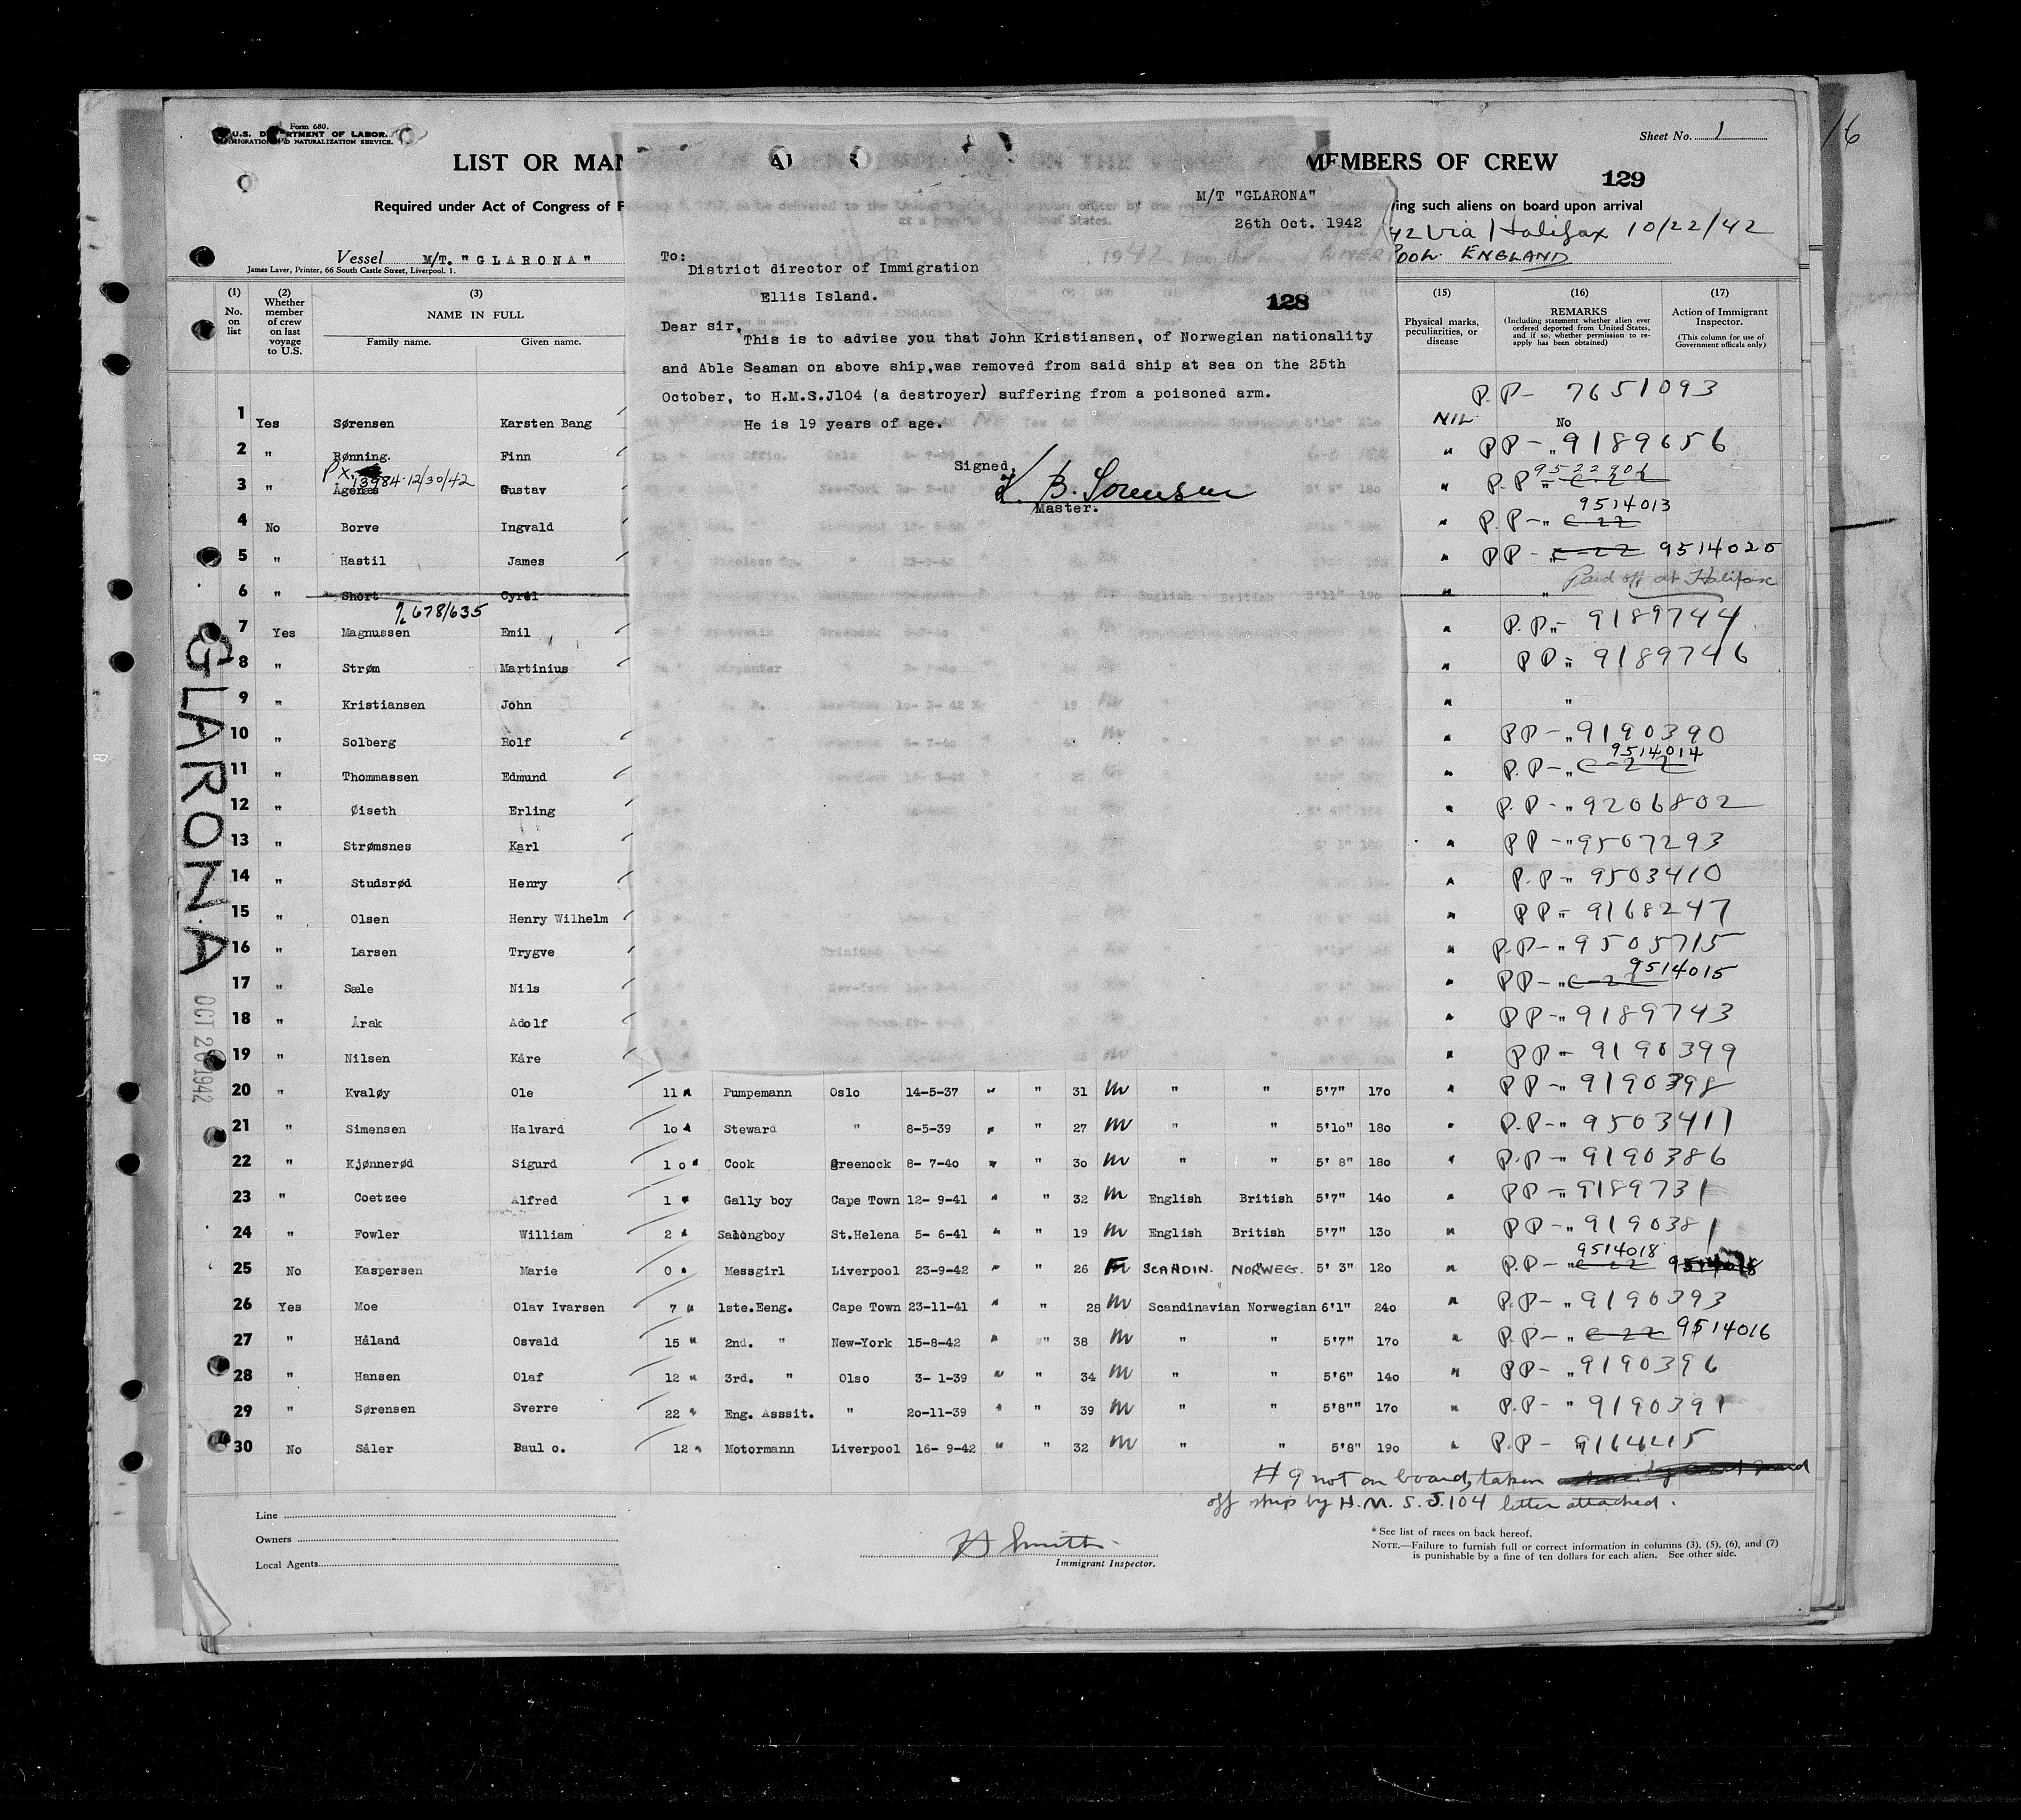 Form 680.
U.S. DEPARTMENT OF LABOR.
IMMIGRATION AND NATURALIZATION SERVICE.
Sheet No. 1
16
LIST OR MAN
MEMBERS OF CREW
129
Required under Act of Congress of F
ring such aliens on board upon arrival
42 Via Halifax 10/22/42
Vessel M/T. "GLARONA"
POOL ENGLAND
James Laver, Printer, 66 South Castle Street, Liverpool. 1.
M/T "GLARONA"
26th Oct. 1942
To:
District director of Immigration
Ellis Island.
128
Dear sir,
This is to advise you that John Kristiansen, of Norwegian nationality
and Able Seaman on above ship,was removed from said ship at sea on the 25th
October, to H.M.S.J104 (a destroyer) suffering from a poisoned arm.
He is 19 years of age.
Signed,
K. B. Sorensen
Master.
(1) No. on list
(2) Whether member of crew on last voyage to U.S.
(3) NAME IN FULL
Family name. Given name.
(15) Physical marks, peculiarities, or disease
(16) REMARKS (Including statement whether alien ever ordered deported from United States, and if so, whether permission to re-apply has been obtained)
(17) Action of Immigrant Inspector. (This column for use of Government officals only)
P.P- 7651093
1 Yes Sørensen Karsten Bang NIL No
2 " Rønning. Finn " PP - " 9189656
PX 13984 12/30/42
3 " Ågenæs Gustav " P.P " 9522901
4 No Borve Ingvald " P.P - " C-22 9514013
5 " Hastil James " PP - " C-22 9514020
6 " Short Cyril " " Paid off at Halifax
678/635
7 Yes Magnussen Emil " P.P. " - 9189744
8 " Strøm Martinius " PP " 9189746
9 " Kristiansen John " "
10 " Solberg Rolf " PP - " 9190390
11 " Thommassen Edmund " P.P - " C-22 9514014
12 " Øiseth Erling " P.P - " 9206802
13 " Strømsnes Karl " PP - " 9507293
14 " Studsrød Henry " P.P - " 9503410
15 " Olsen Henry Wilhelm " PP - " 9168247
16 " Larsen Trygve " P.P - " 9505715
17 " Sæle Nils " PP - " C-22 9514015
18 " Årak Adolf " PP - " 9189743
19 " Nilsen Kåre " PP - " 9190399
20 " Kvaløy Ole 11 " Pumpemann Oslo 14-5-37 " " 31 m " " 5'7" 170 " PP - " 9190398
21 " Simensen Halvard 10 " Steward " 8-5-39 " " 27 m " " 5'10" 180 " P.P - " 9503411
22 " Kjønnerød Sigurd 10 " Cook greenock 8- 7-40 " " 30 m " " 5' 8" 180 " P.P - " 9190386
23 " Coetzee Alfred 1 " Gally boy Cape Town 12- 9-41 " " 32 m English British 5'7" 140 " PP - " 9189731
24 " Fowler William 2 " Salongboy St.Helena 5- 6-41 " " 19 m English British 5'7" 130 " PP - " 9190381
25 No Kaspersen Marie 0 " Messgirl Liverpool 23-9-42 " " 26 F SCANDIN. NORWEG. 5' 3" 120 " P.P - " C-22 9514018 9514018
26 Yes Moe Olav Ivarsen 7 " 1ste.Eeng. Cape Town 23-11-41 " " 28 m Scandinavian Norwegian 6'1" 240 " P.P - " 9190393
27 " Håland Osvald 15 " 2nd. " New-York 15-8-42 " " 38 m " " 5'7" 170 " P.P - " C-22 9514016
28 " Hansen Olaf 12 " 3rd. " Olso 3- 1-39 " " 34 m " " 5'6" 140 " PP - " 9190396
29 " Sørensen Sverre 22 " Eng. Asssit. " 20-11-39 " " 39 m " " 5'8"" 170 " P.P - " 9190391
30 No Såler Baul o. 12 " Motormann Liverpool 16- 9-42 " " 32 m " " 5'8" 190 " P.P - " 9164215
# 9 not on board, taken
off ship by H.M.S. J.104 letter attached.
GLARONA
OCT 26 1942
Line
Owners
Local Agents
H Smith
Immigrant Inspector.
* See list of races on back hereof.
NOTE.—Failure to furnish full or correct information in columns (3), (5), (6), and (7)
is punishable by a fine of ten dollars for each alien. See other side.